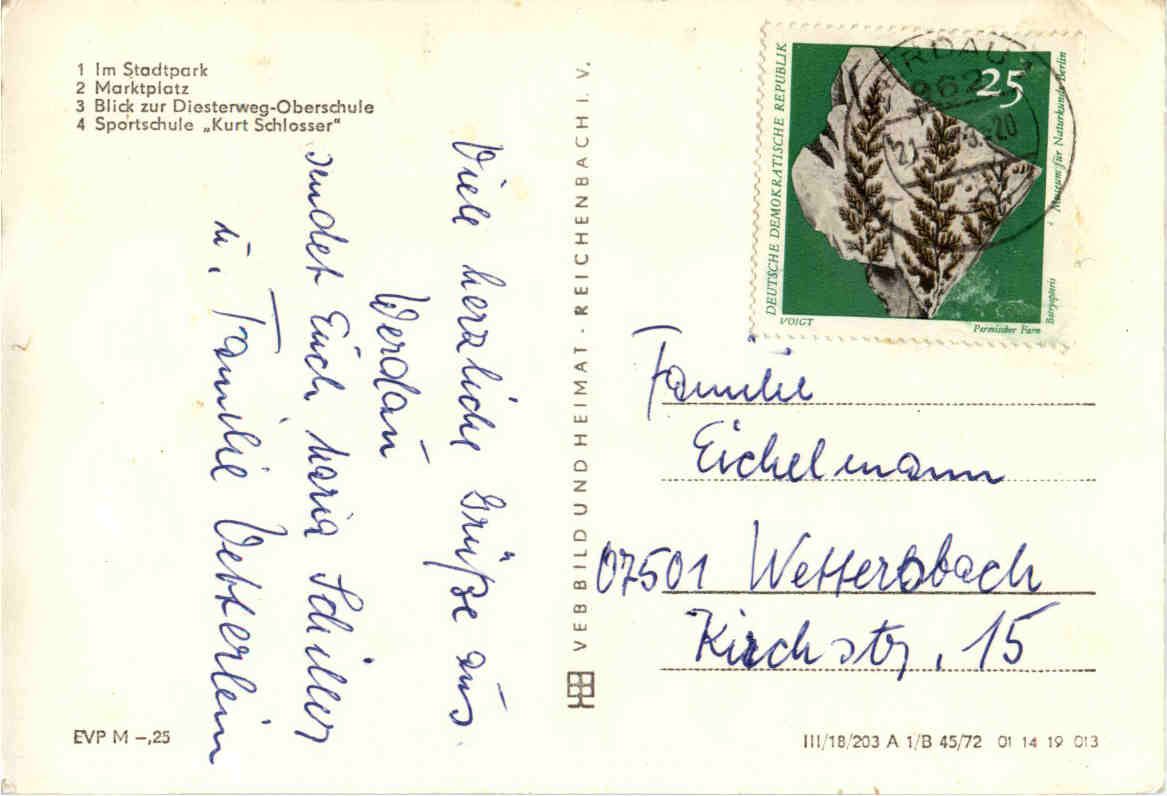 1 Im Stadtpark
2 Marktplatz
3 Blick zur Diesterweg-Oberschule
4 Sportschule „Kurt Schlosser“
Viele herzliche Grüße aus
Werdau
sendet Euch Maria Schiller
u. Familie Vetterlein
EVP M –,25
VEB BILD UND HEIMAT · REICHENBACH I. V.
DEUTSCHE DEMOKRATISCHE REPUBLIK
25
Museum für Naturkunde Berlin
VOIGT
Permischer Farn
RDAU
962
21
20
Familie
Eichelmann
07501 Wettersbach
Kirchstr. 15
III/18/203 A 1/B 45/72 01 14 19 013